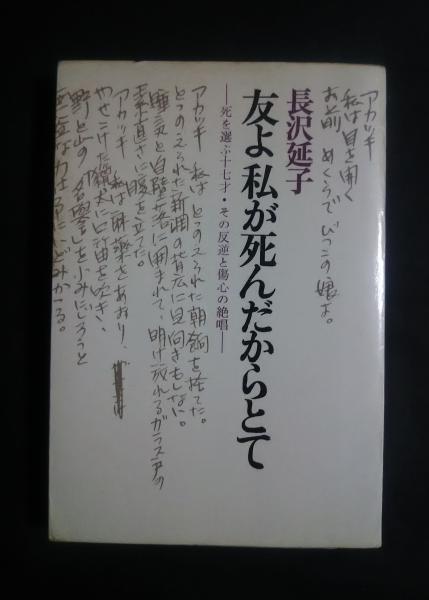 アカツキ
私は目を開く
お前 めくらで びっこの 娘よ。
長沢延子
友よ私が死んだからとて
―死を選ぶ十七才・その反逆と傷心の絶唱―
アカツキ 私は とゝのえられた朝餉を捨てた。
とゝのえられた新調の背広に見向きもしない。
睡気と自堕落に囲まれて、明け放れるガラス戸の
素直さに腹を立てた。
アカツキ 私は麻薬をあおり、
やせこけた猟犬に口笛を吹き、
野と山の
にいどみかゝる。